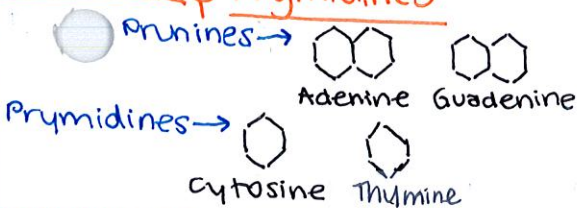 Prunines→
Adenine Guadenine
Prymidines→
Cytosine Thymine